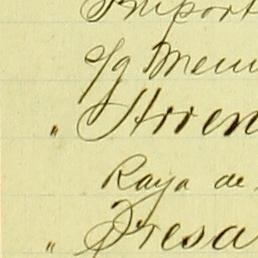 Import
c/g Mem
" Arren
Raya de
" Presa